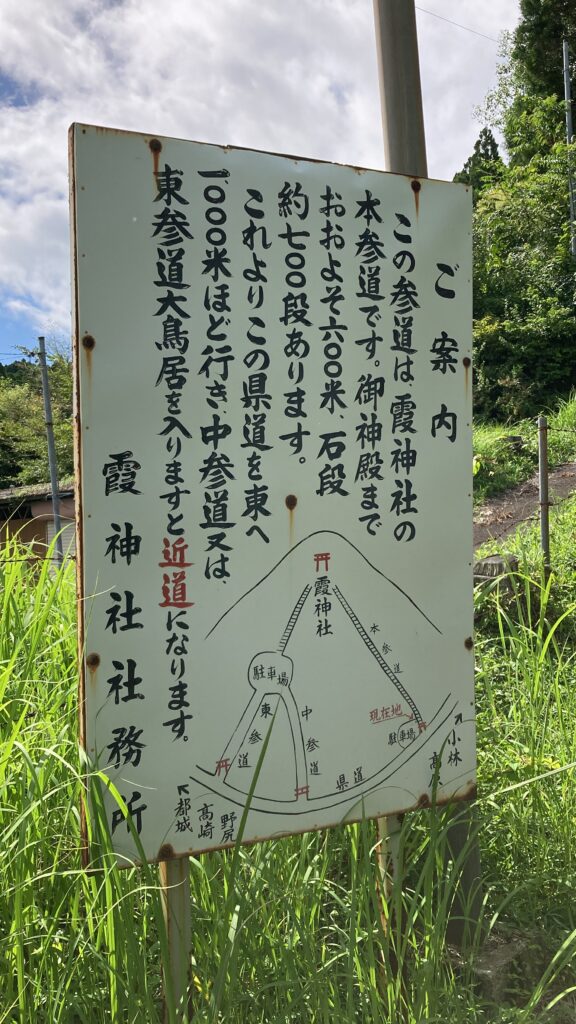 ご案内
この参道は、霞神社の
本参道です。御神殿まで
おおよそ六〇〇米、石段
約七〇〇段あります。
これよりこの県道を東へ
一、〇〇〇米ほど行き、中参道又は、
東参道大鳥居を入りますと近道になります。
霞神社社務所
霞神社
本参道
駐車場
東参道
中参道
現在地
駐車場
県道
↗小林
↖都城
高崎
野尻